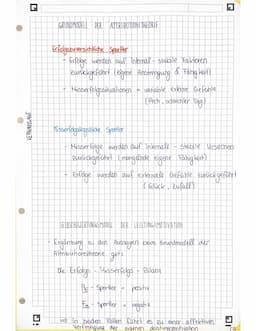 GRUNDMODELL DER ATTRIBUTIONSTHEORIE
Erfolgszuversichtliche Sportler
- Erfolge werden auf internal-stabile Faktoren
zurückgeführt (eigene Anstrengung & Fähigkeit)
- Misserfolgssituationen = variable externe Gefühle
(Pech, schlechter Tag)
Misserfolgsängstliche Sportler
- Misserfolge werden auf internal-stabile Ursachen
zurückgeführt (mangelnde eigene Fähigkeit)
- Erfolge werden auf externale Gefühle zurückgeführt
(Glück, Zufall)
SELBSTBEWERTUNGSMODELL DER LEISTUNGSMOTIVATION
- Ergänzung zu den Aussagen beim Grundmodell der
Attributionstheorie gilt:
Die Erfolgs-Misserfolgs-Bilanz
Sportler = positiv
Sportler = negativ
in beiden Fällen führt es zu einer affektiven
Verfestigung der eigenen